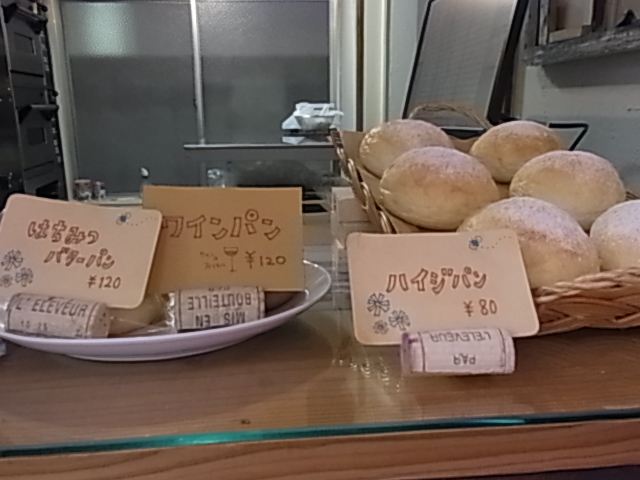 はちみつ
バターパン
¥120
ワインパン
¥120
ハイジパン
¥80
L'ELEVEUR
MIS EN
BOUTEILLE
PAR
L'ELEVEUR